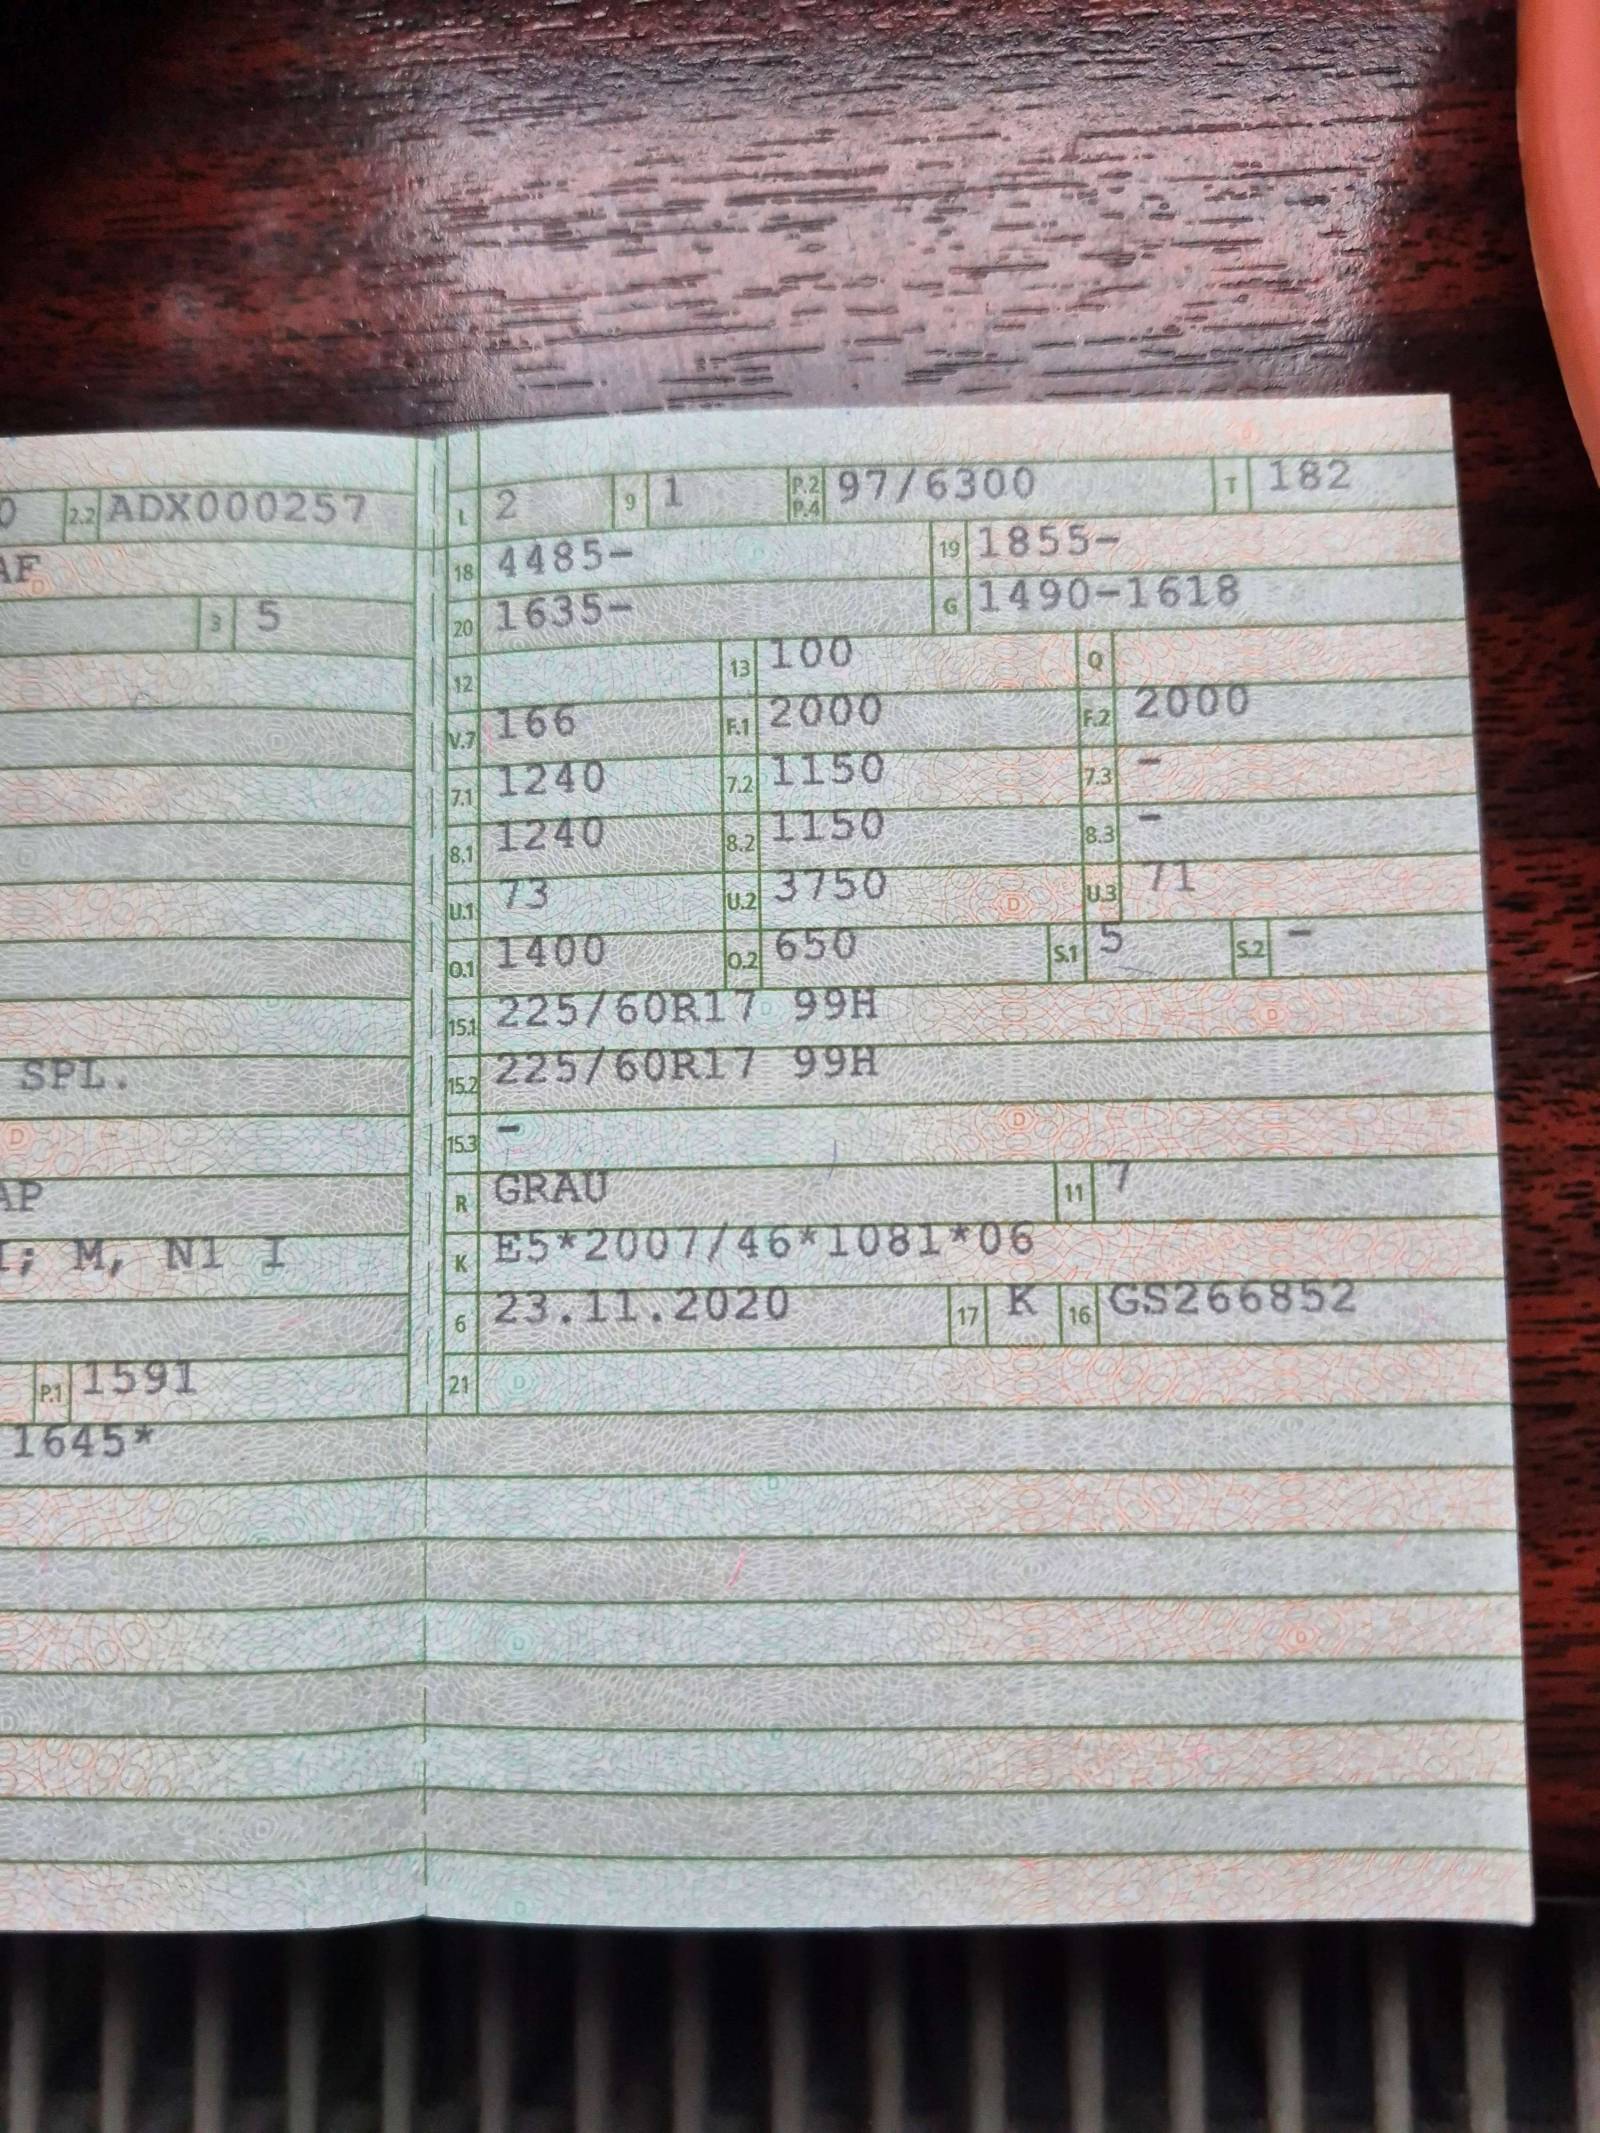 0 2.2 ADX000257
AF
3 5
SPL.
AP
; M, N1 I
P.1 1591
1645*
L 2 9 1 P.2 P.4 97/6300 T 182
18 4485- 19 1855-
20 1635- G 1490-1618
12 13 100 Q
V.7 166 F.1 2000 F.2 2000
7.1 1240 7.2 1150 7.3 -
8.1 1240 8.2 1150 8.3 -
U.1 73 U.2 3750 U.3 71
O.1 1400 O.2 650 S.1 5 S.2 -
15.1 225/60R17 99H
15.2 225/60R17 99H
15.3 -
R GRAU 11 7
K E5*2007/46*1081*06
6 23.11.2020 17 K 16 GS266852
21